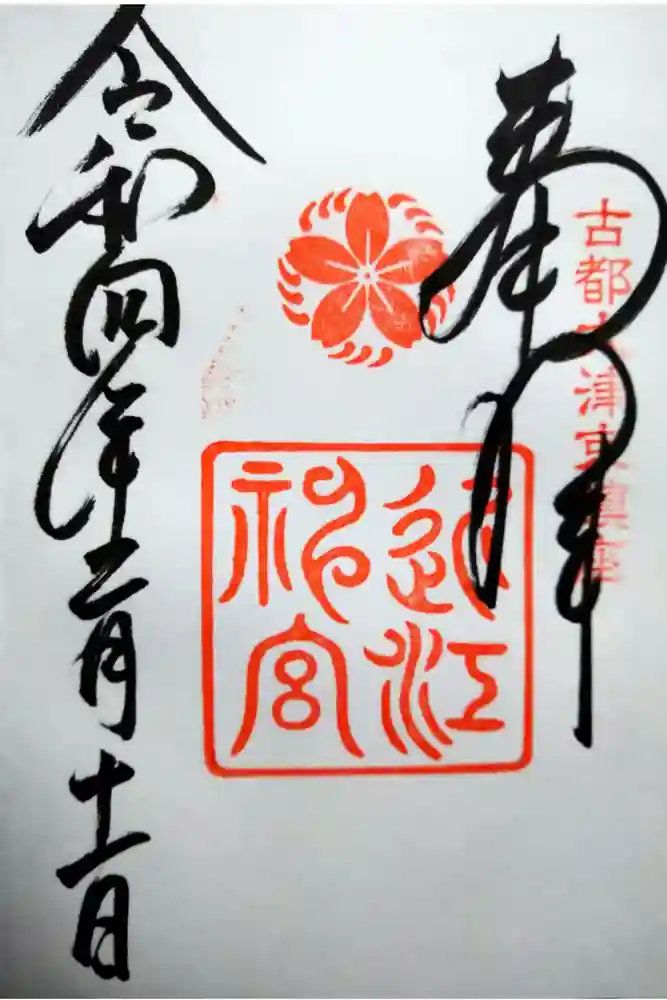 古都大津京鎮座
奉拝
近江
神宮
令和四年二月十一日